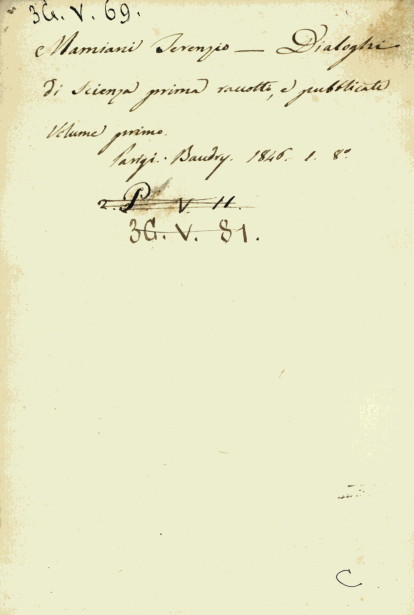 3G. V. 69.
Mamiani Terenzio — Dialoghi
di Scienza prima raccolti, e pubblicati
Volume primo.
Parigi. Baudry. 1846. 1. 8°
2. P V 11
3G. V. 81.
C